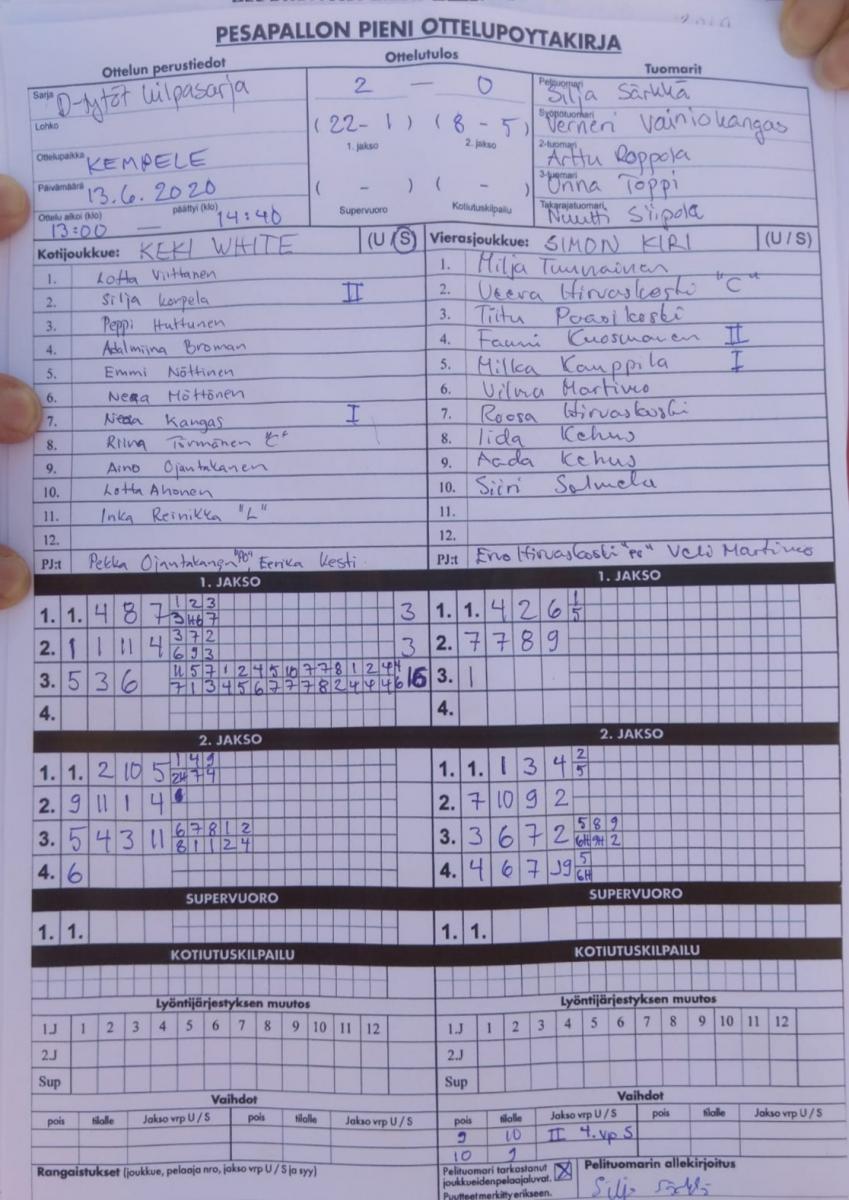 PESÄPALLON PIENI OTTELUPÖYTÄKIRJA
Ottelun perustiedot
Ottelutulos
Tuomarit
Sarja D-tytöt kilpasarja
2 — 0
Pelituomari Silja Särkkä
Lohko
(22 - 1) (8 - 5)
Syöttötuomari Verneri Vainiokangas
1. jakso 2. jakso
Ottelupaikka KEMPELE
2-tuomari Arttu Roppola
Päivämäärä 13.6.2020
( - ) ( - )
3-tuomari Onna Toppi
Ottelu alkoi (klo) 13:00 — päättyi (klo) 14:40
Supervuoro Kotiutuskilpailu
Takarajatuomari, Nuutti Siipola
Kotijoukkue: KEKI WHITE (U / S)
Vierasjoukkue: SIMON KIRI (U / S)
1. Lotta Viittanen
1. Milja Tunnainen
2. Silja Korpela II
2. Veera Hirvaskoski "C"
3. Peppi Huttunen
3. Tiitu Paasikoski
4. Adalmiina Broman
4. Fanni Kuosmanen II
5. Emmi Nöttinen
5. Milka Kauppila I
6. Neea Möttönen
6. Vilma Martimo
7. Neea Kangas I
7. Roosa Hirvaskoski
8. Riina Törmänen "C"
8. Iida Kehus
9. Aino Ojantakanen
9. Aada Kehus
10. Lotta Ahonen
10. Siiri Salmela
11. Inka Reinikka "L"
11.
12.
12.
PJ:t Pekka Ojantakanen "PO", Eerika Kesti
PJ:t Ervo Hirvaskoski "PO" Veli Martimo
1. JAKSO
1. JAKSO
1 2 3
1
1. 1. 4 8 7 3 H6 7 3
1. 1. 4 2 6 5
3 7 2
2. 1 1 11 4 6 9 3 3
2. 7 7 8 9
11 5 7 1 2 4 5 10 7 7 8 1 2 4 4
3. 5 3 6 7 1 3 4 5 6 7 7 7 8 2 4 4 4 6 16
3. 1
4.
4.
2. JAKSO
2. JAKSO
1 4 9
2
1. 1. 2 10 5 2H 7 4
1. 1. 1 3 4 5
2. 9 11 1 4
2. 7 10 9 2
6 7 8 1 2
5 8 9
3. 5 4 3 11 8 1 1 2 4
3. 3 6 7 2 6H 9H 2
5
4. 6
4. 4 6 7 J9 6H
SUPERVUORO
SUPERVUORO
1. 1.
1. 1.
KOTIUTUSKILPAILU
KOTIUTUSKILPAILU
Lyöntijärjestyksen muutos
Lyöntijärjestyksen muutos
1.J 1 2 3 4 5 6 7 8 9 10 11 12
1.J 1 2 3 4 5 6 7 8 9 10 11 12
2.J
2.J
Sup
Sup
Vaihdot
Vaihdot
pois tilalle Jakso vrp U / S pois tilalle Jakso vrp U / S
pois tilalle Jakso vrp U / S pois tilalle Jakso vrp U / S
9 10 II 4. vp S
10 9
Rangaistukset (joukkue, pelaaja nro, jakso vrp U / S ja syy)
Pelituomari tarkastanut
joukkueidenpelaajaluvat.
Puutteet merkitty erikseen.
Pelituomarin allekirjoitus
Silja Särkkä